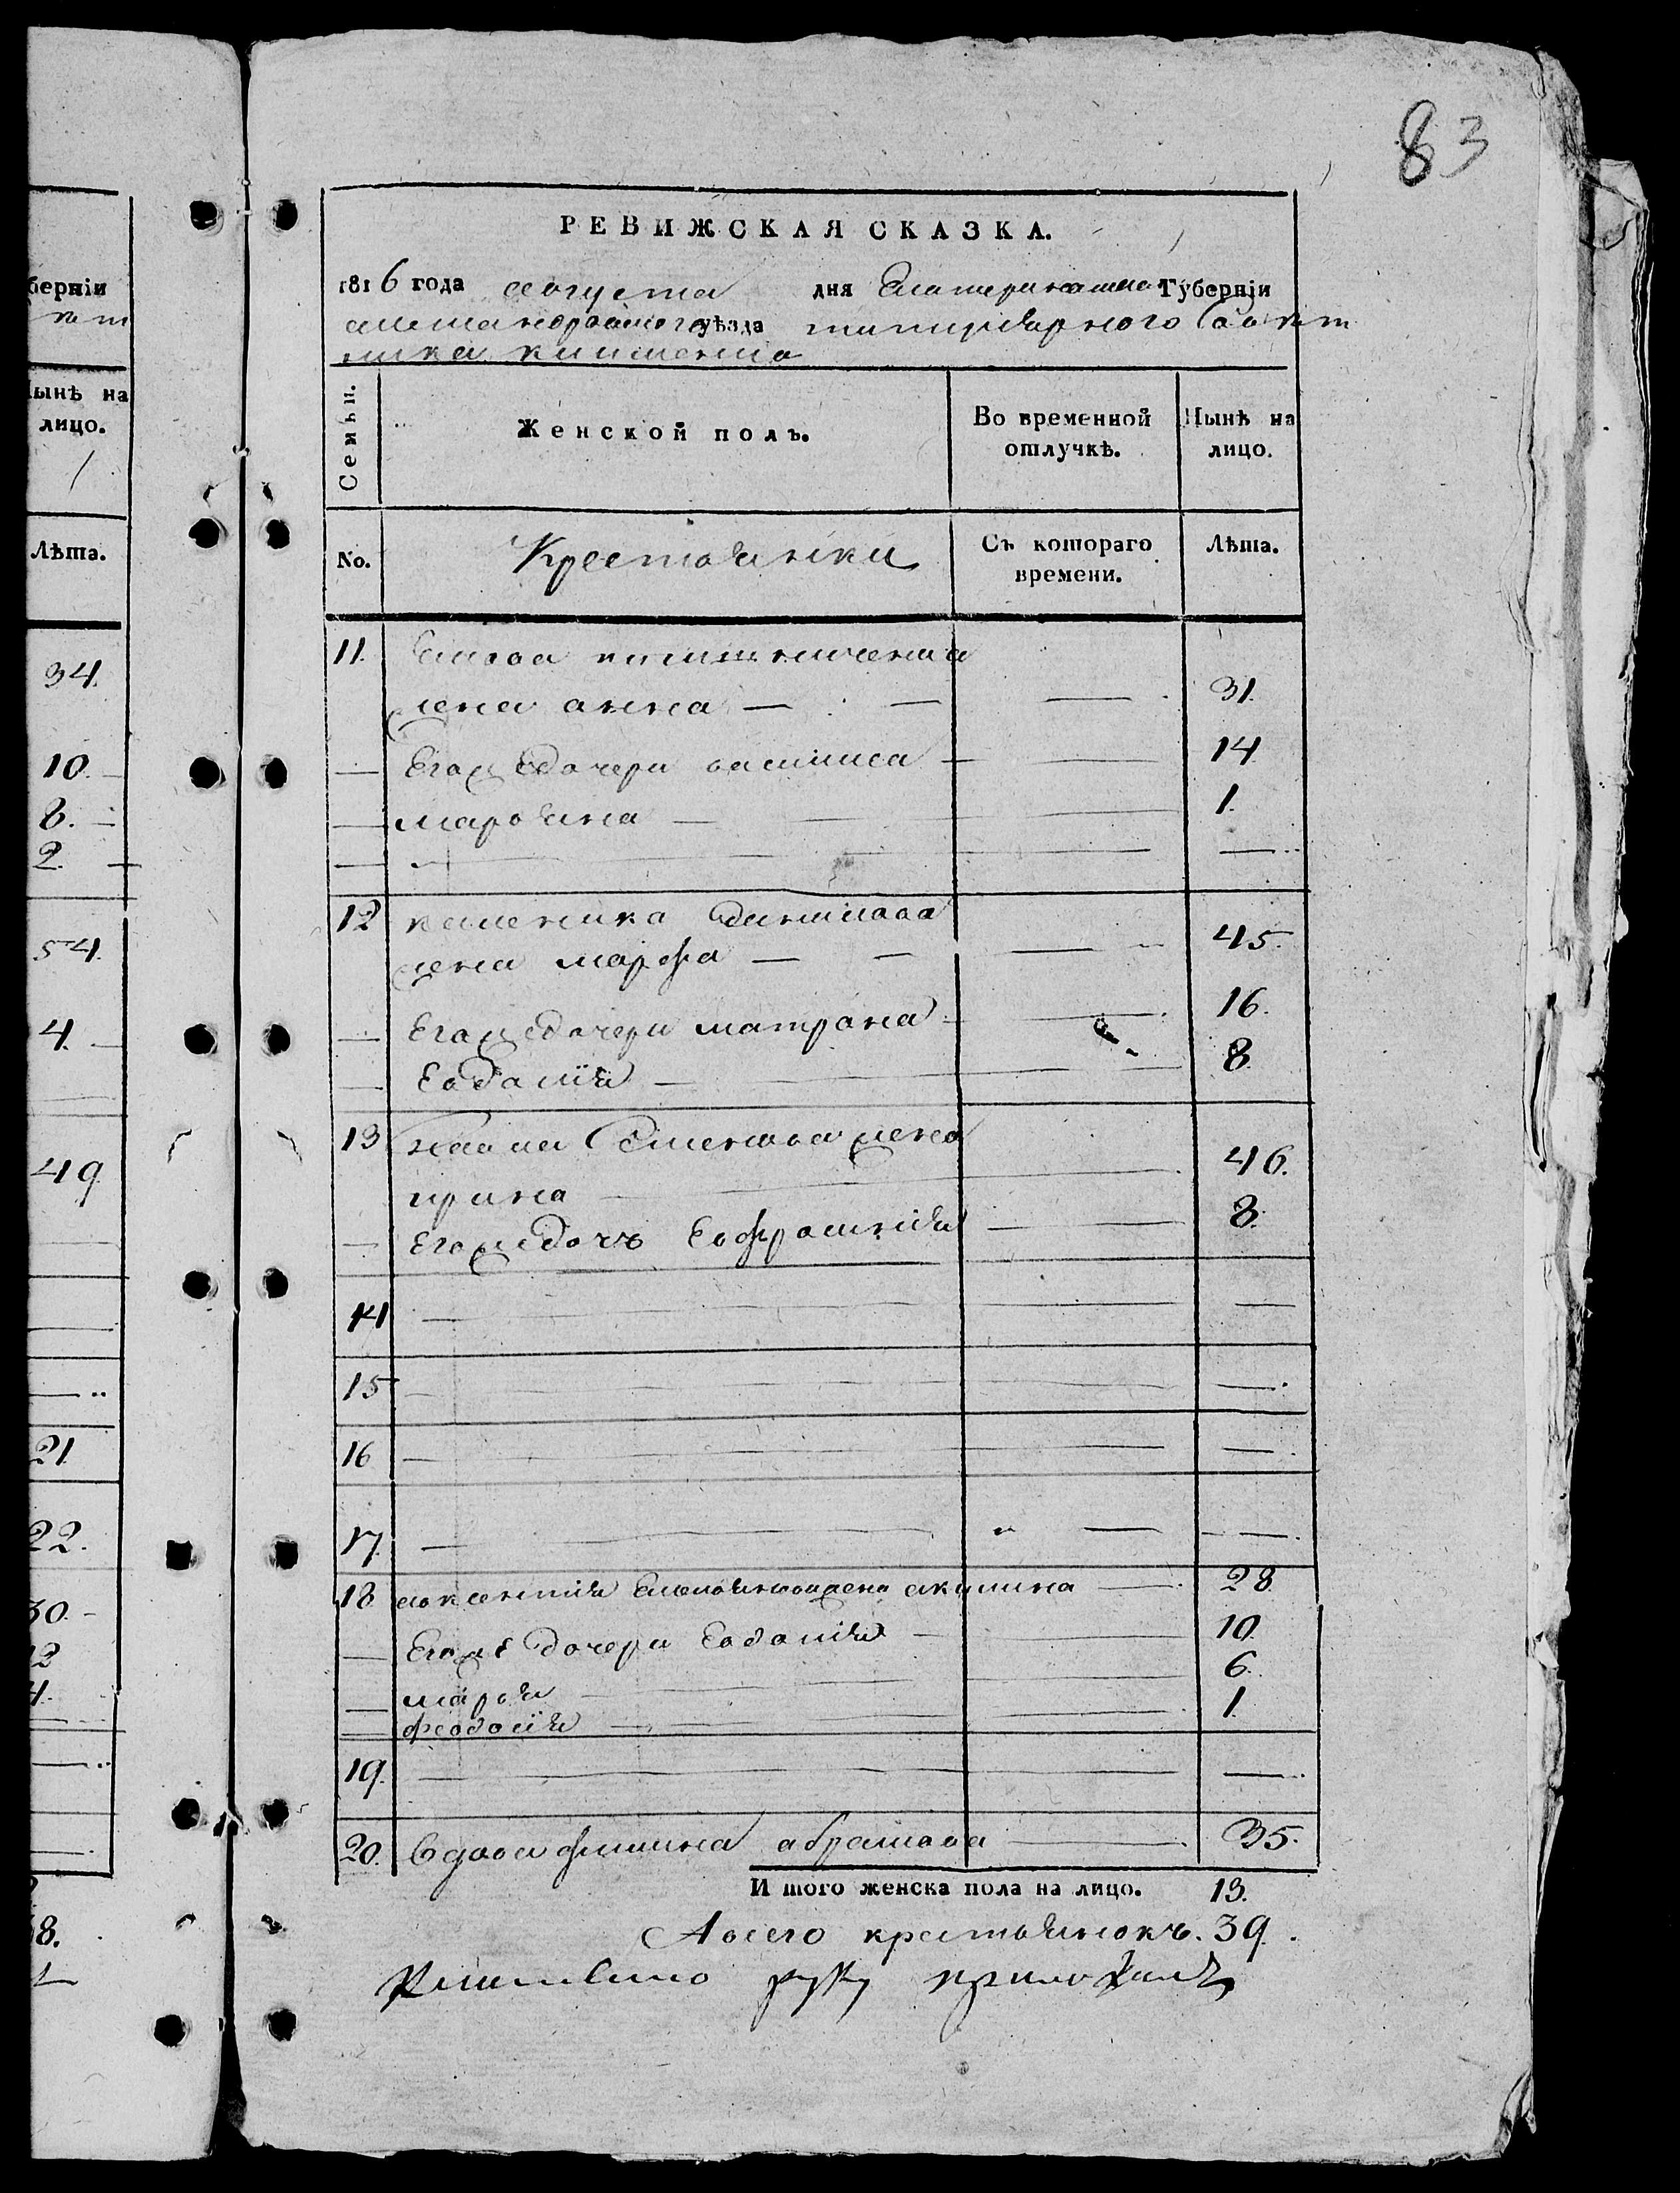 83
РЕВИЖСКАЯ СКАЗКА.
1816 года августа дня Екатеринослав Губерніи
александровского уѣзда титулярного Совѣт
ника кишенска
Семьи. Женской полъ. Во временной отлучкѣ. Нынѣ на лицо.
No. Крестьянки Съ котораго времени. Лѣта.
11.
жена анна — — — 31.
— Егожъ дочери василиса — — 14
— марьяна — — — 1.
12
жена марфа — — — 45.
— Егожъ дочери матрона — — 16.
— Евдокия — — — 8.
13 Савы Семенова жена
ирина — — 46.
— Егожъ дочь Ефросиния — 8.
14 — — —
15 — — —
16 — — —
17. — — —
18 авксентия Емельянова жена акилина — 28
— Егожъ дочери Евдокия — — 10.
— марья — — 6.
— феодосия — — 1.
19. — — —
20. Вдова абрамова — 35.
И того женска пола на лицо. 13.
А всего крестьянокъ. 39.
руку приложилъ
берніи
ынѣ на
лицо.
Лѣта.
34.
10.
8.
2.
54.
4.
49
21
22.
30.
8.